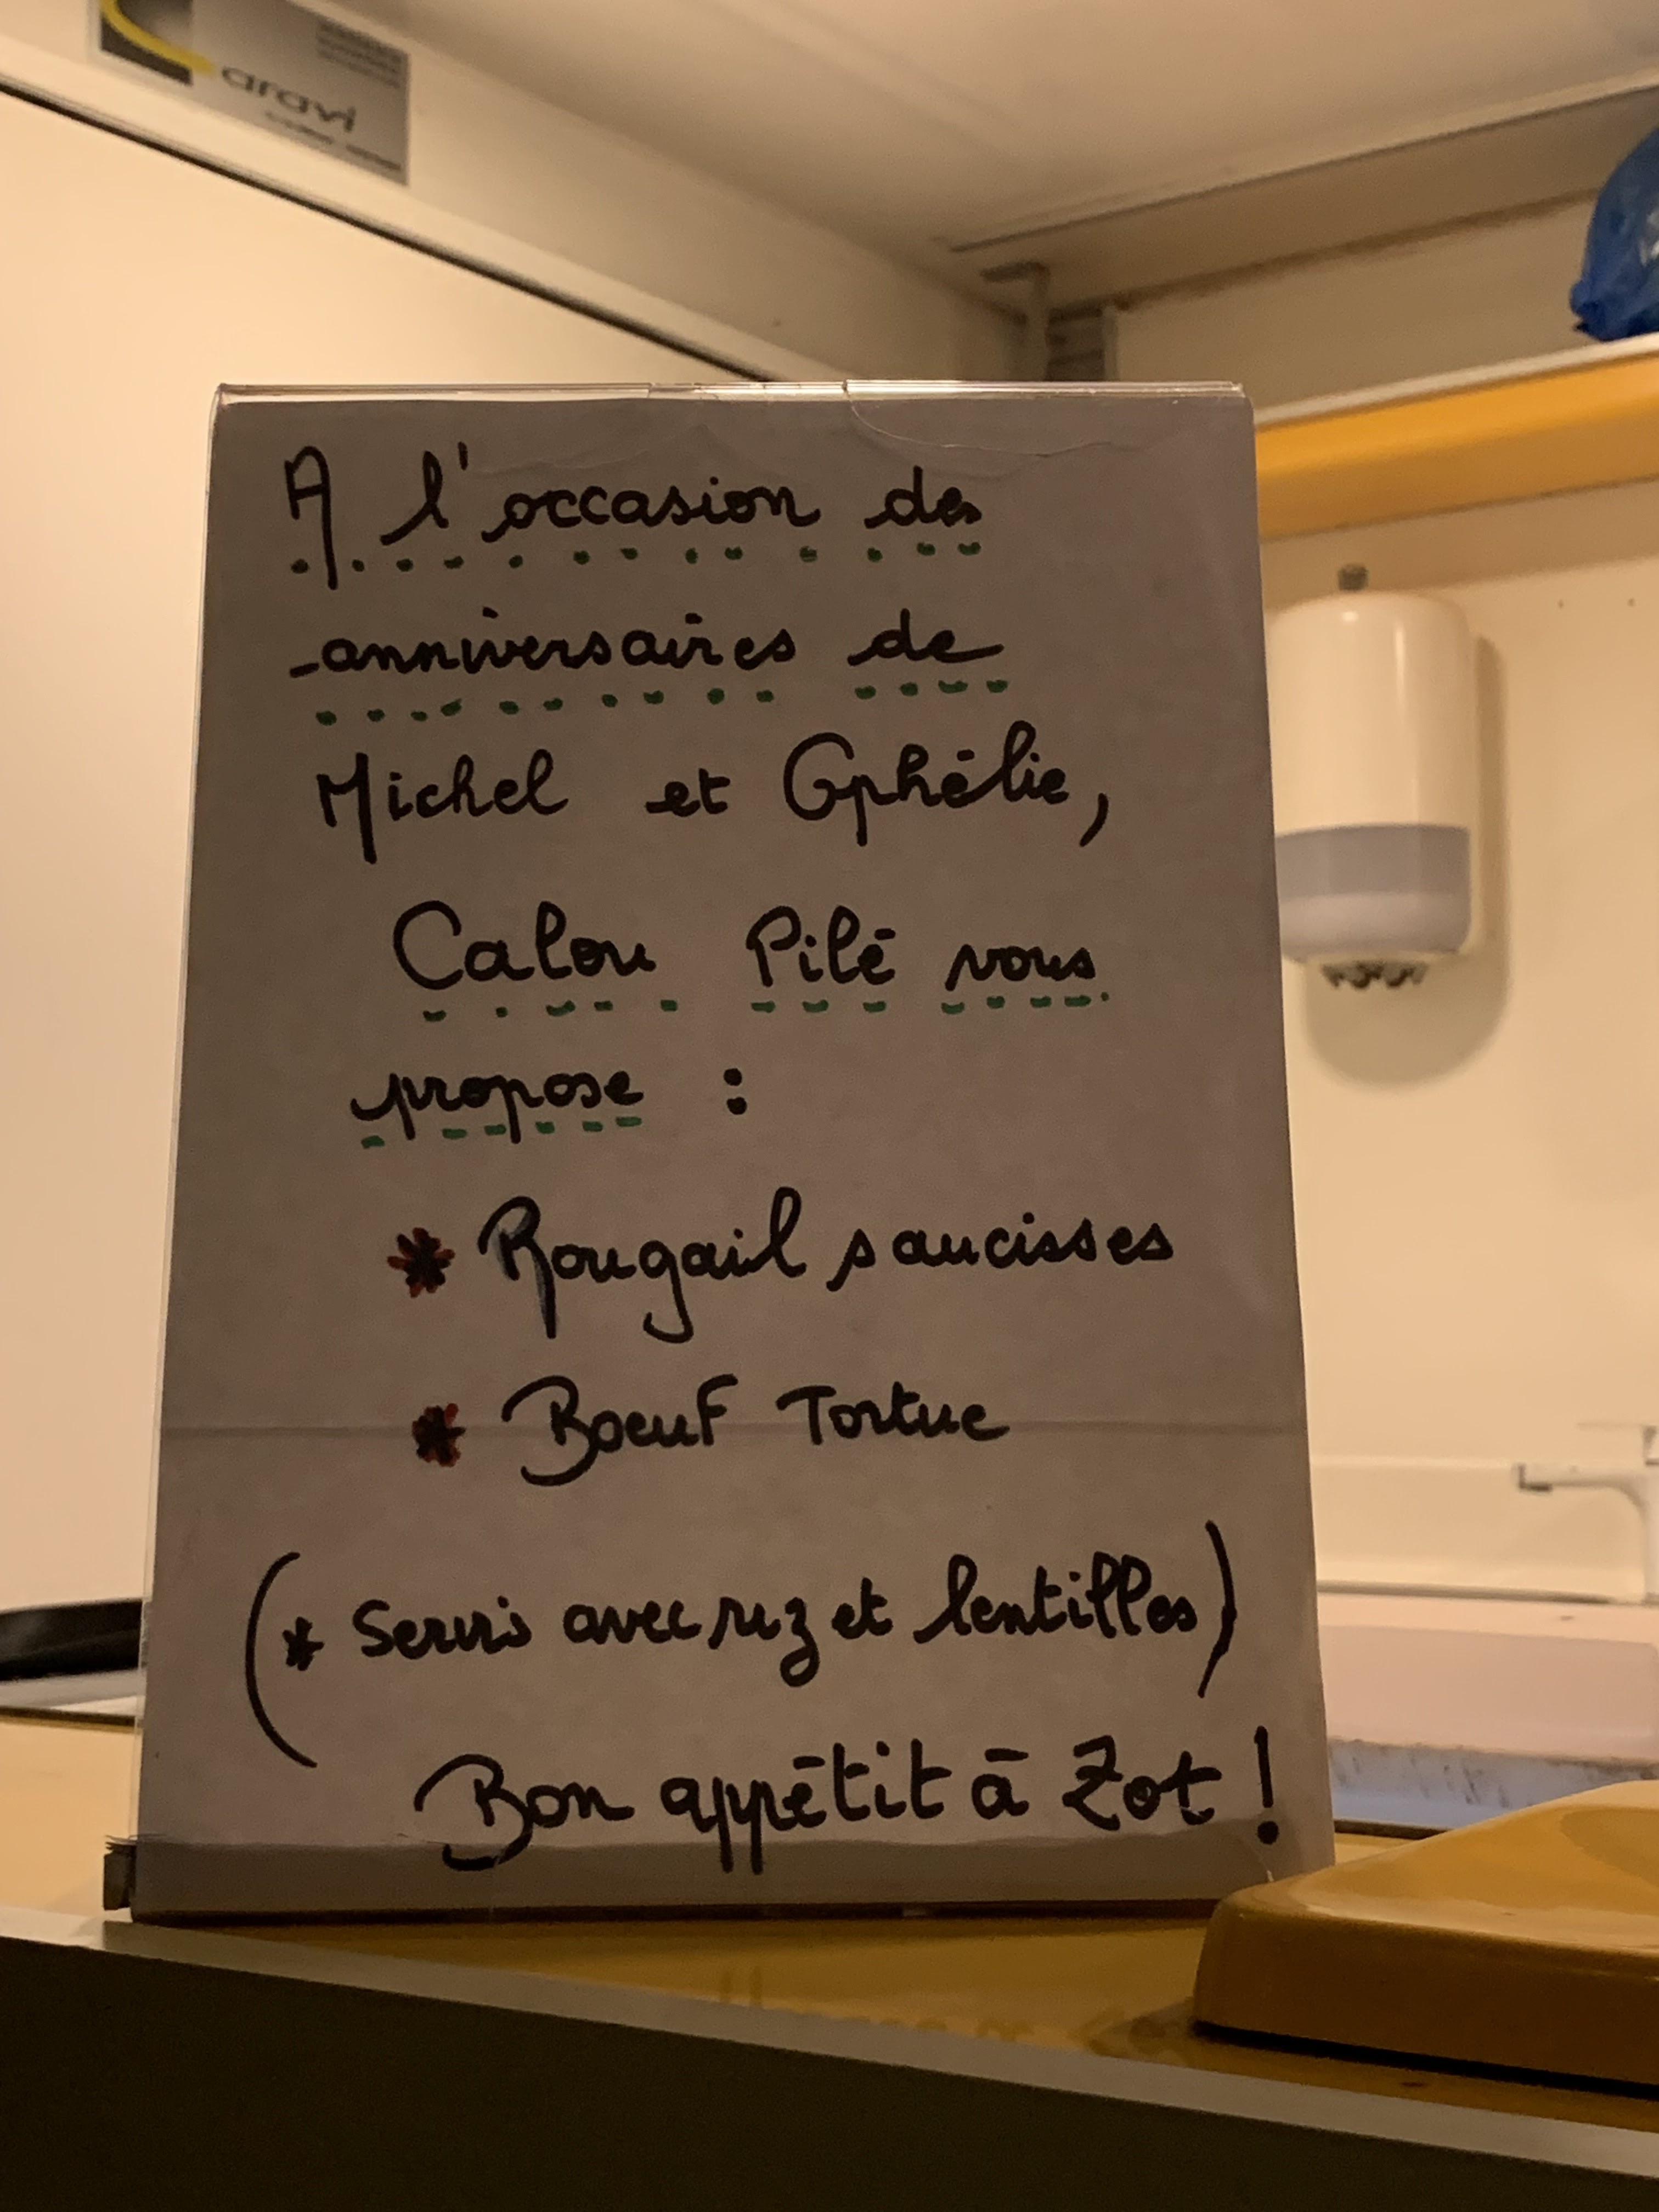 aravi
A l'occasion des
anniversaires de
Michel et Ophélie,
Calou Pilé vous
propose :
* Rougail saucisses
* Boeuf Tortue
(* Servis avec riz et lentilles)
Bon appétit à Zot !